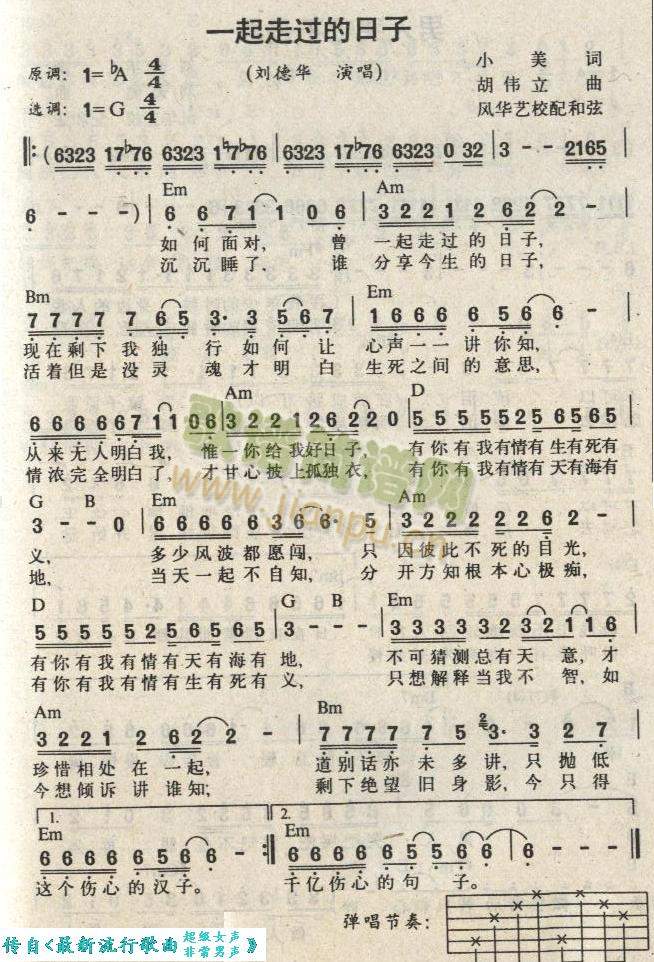 一起走过的日子
原调: 1=♭A 4/4 (刘德华 演唱) 小美 词
胡伟立 曲
选调: 1=G 4/4 风华艺校配和弦
‖: (6323 17♭76 6323 1♭7♭76 | 6323 17♭76 6323 0 32 | 3 - - 2165 |
Em Am
6 - - -) | 6 6 7 1 1 0 6 | 3 2 2 1 2 6 2 2 - |
如何面对, 曾 一起走过的日子,
沉沉睡了, 谁 分享今生的日子,
Bm Em
7 7 7 7 7 6 5 3· 3 5 6 7 | 1 6 6 6 6 5 6 6 - |
现在剩下我独 行如何让 心声一一讲你知,
活着但是没灵 魂才明白 生死之间的意思,
Am D
6 6 6 6 6 6 7 1 1 0 6 | 3 2 2 1 2 6 2 2 2 0 | 5 5 5 5 5 5 2 5 6 5 6 5 |
从来无人明白我, 惟一你给我好日子, 有你有我有情有生有死有
情浓完全明白了, 才甘心披上孤独衣, 有你有我有情有天有海有
G B Em Am
3 - - 0 | 6 6 6 6 6 3 6 6· 5 | 3 2 2 2 2 2 6 2 - |
义, 多少风波都愿闯, 只 因彼此不死的目光,
地, 当天一起不自知, 分 开方知根本心极痴,
D G B Em
5 5 5 5 5 5 2 5 6 5 6 5 | 3 - - - | 3 3 3 3 3 2 3 2 1 1 6 |
有你有我有情有天有海有 地, 不可猜测总有天 意, 才
有你有我有情有生有死有 义, 只想解释当我不 智, 如
Am Bm
3 2 2 1 2 6 2 2 - | 7 7 7 7 7 5 3· 3 2 7 |
珍惜相处在一起, 道别话亦未多讲, 只抛低
今想倾诉讲谁知; 剩下绝望旧身影, 今只得
1. 2.
Em Em
6 6 6 6 6 5 6 6 - :‖ 6 6 6 6 6 5 5 6 6 | 6 - - - ‖
这个伤心的汉子。 千亿伤心的句 子。
弹唱节奏:
传自<最新流行歌曲 超级女声 非常男声 》
www.jianpu.cn